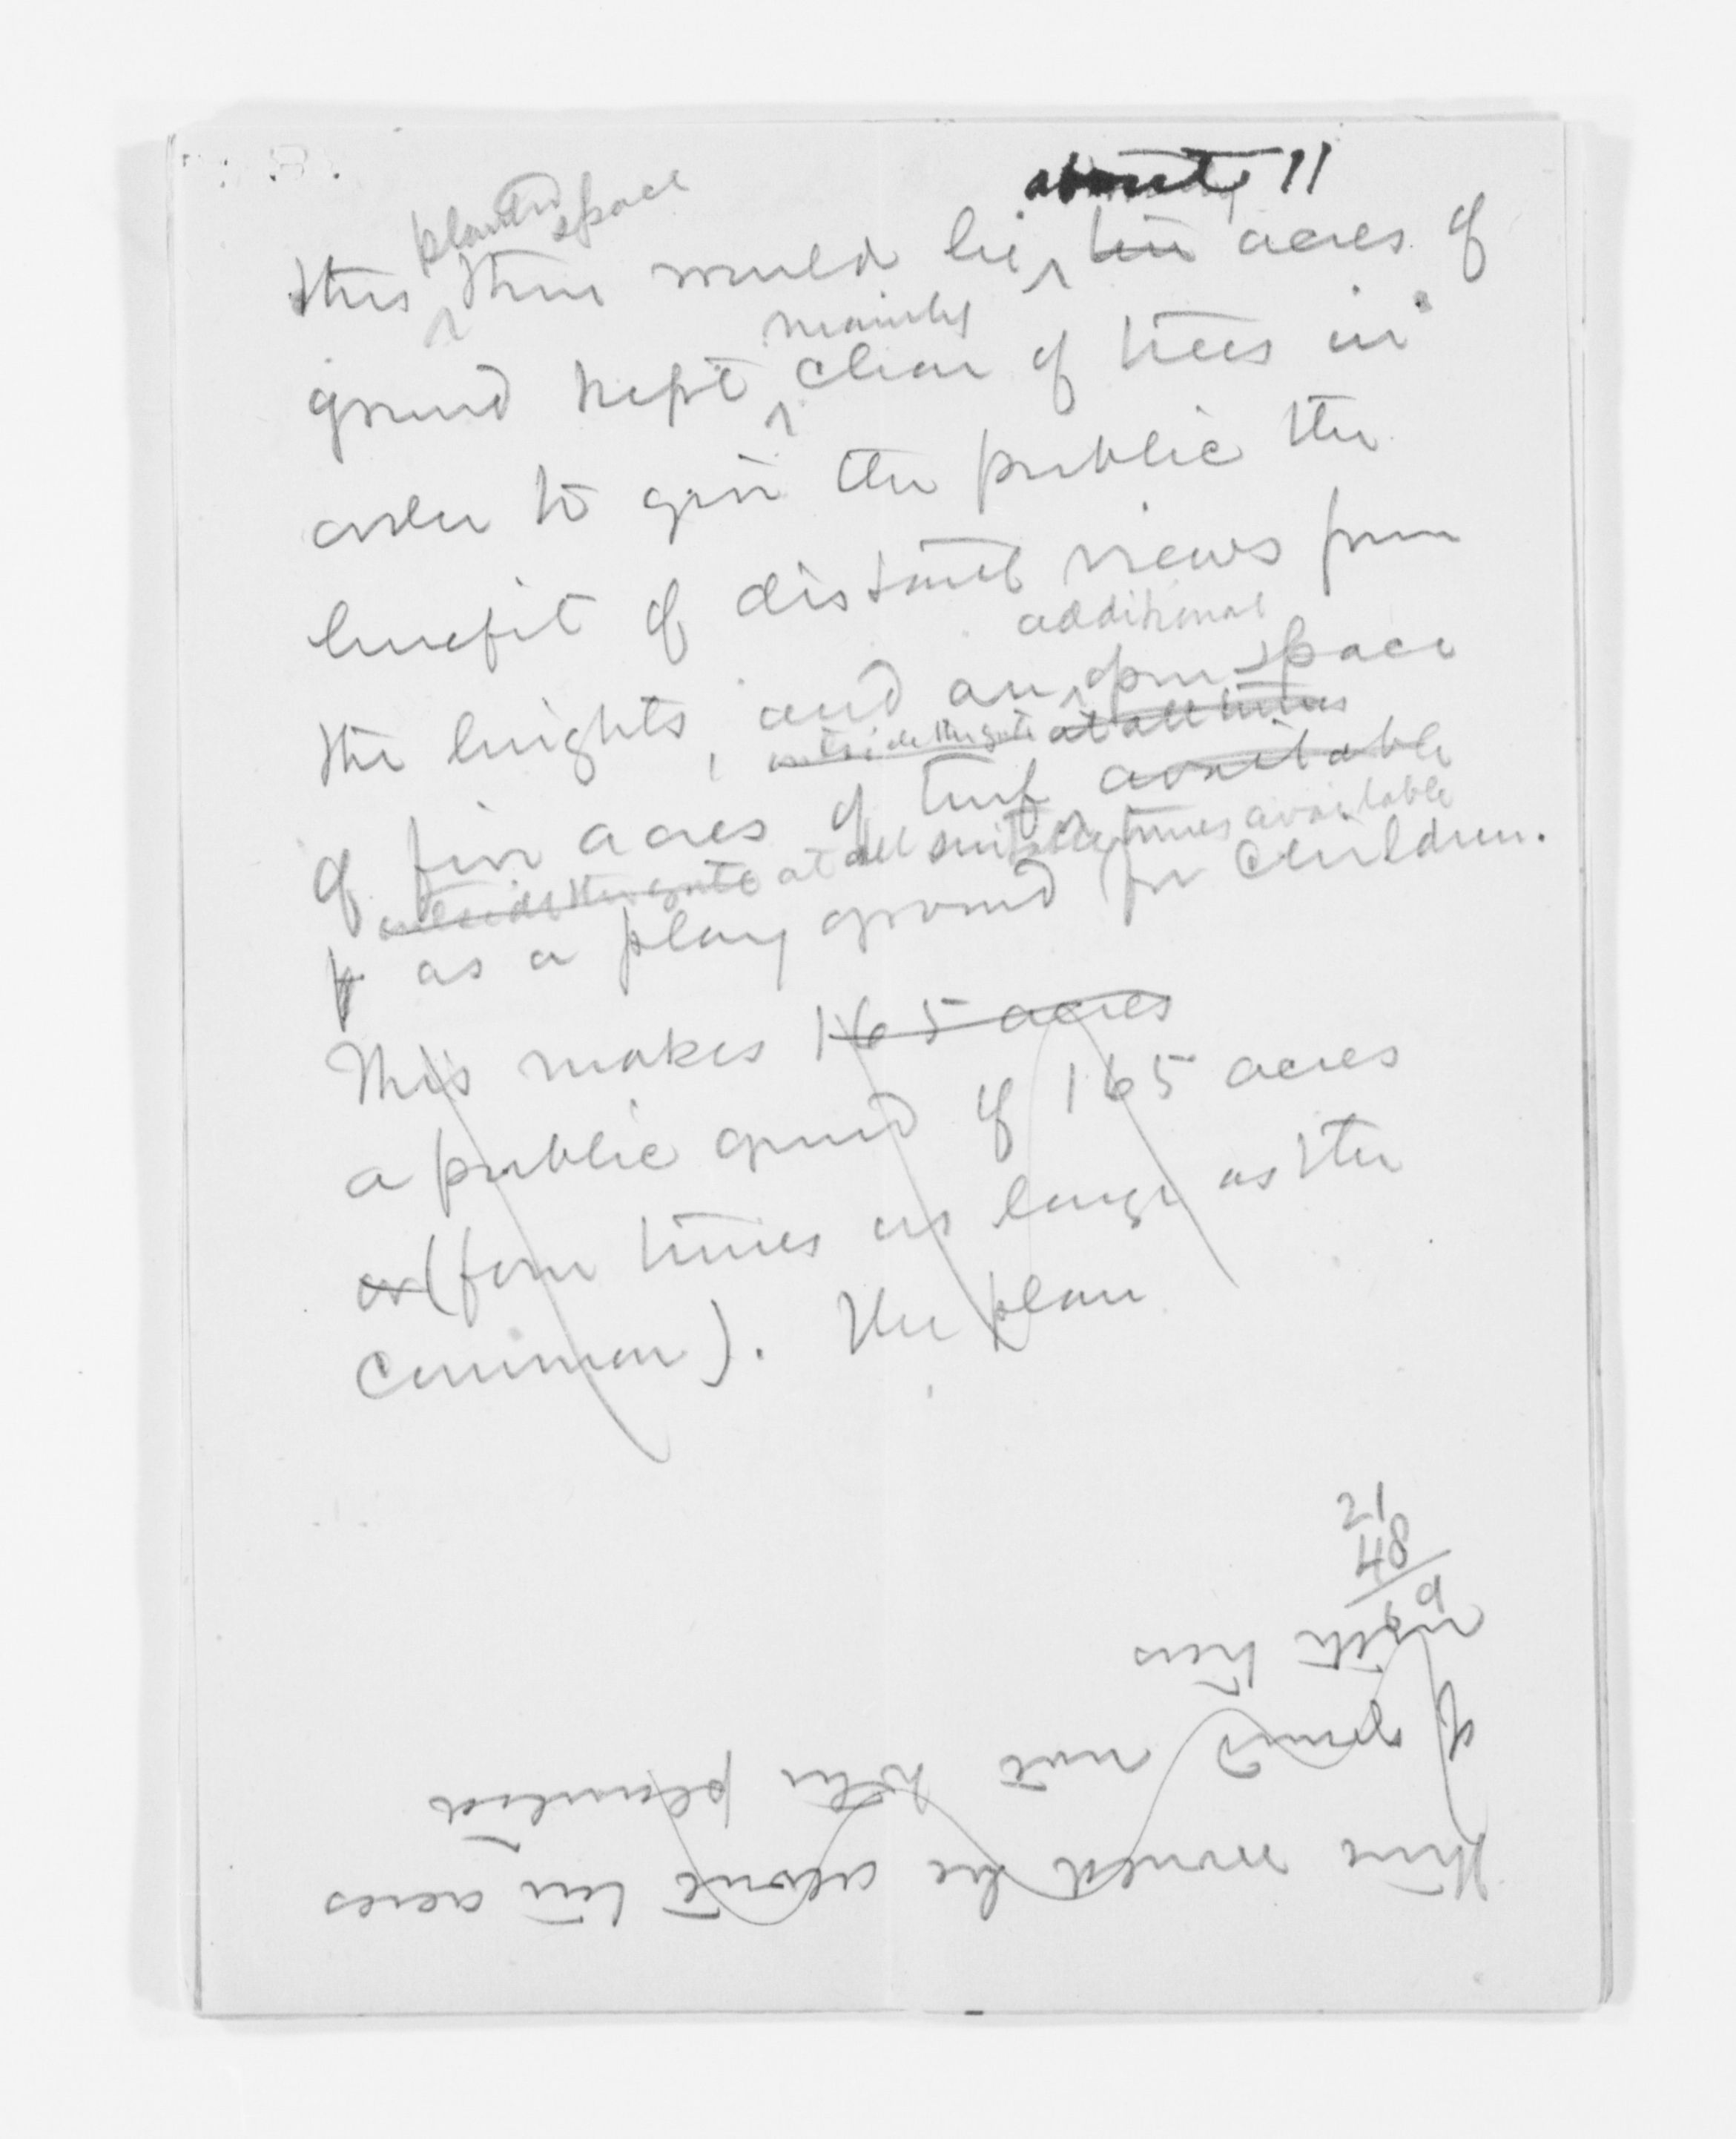 about 11
planted space
this there would be ten acres of
mainly
ground kept clear of trees in
order to give the public the
benefit of distant views from
additional
the heights, and an open space
outside the gate at all times
of five acres of turf available
outside the gate at all suitable times available
as a play ground for children.
This makes 165 acres
a public ground of 165 acres
or (four times as large as the
Common). The plan
21
48
69
There would be about ten acres
of ground not to be planted
with trees